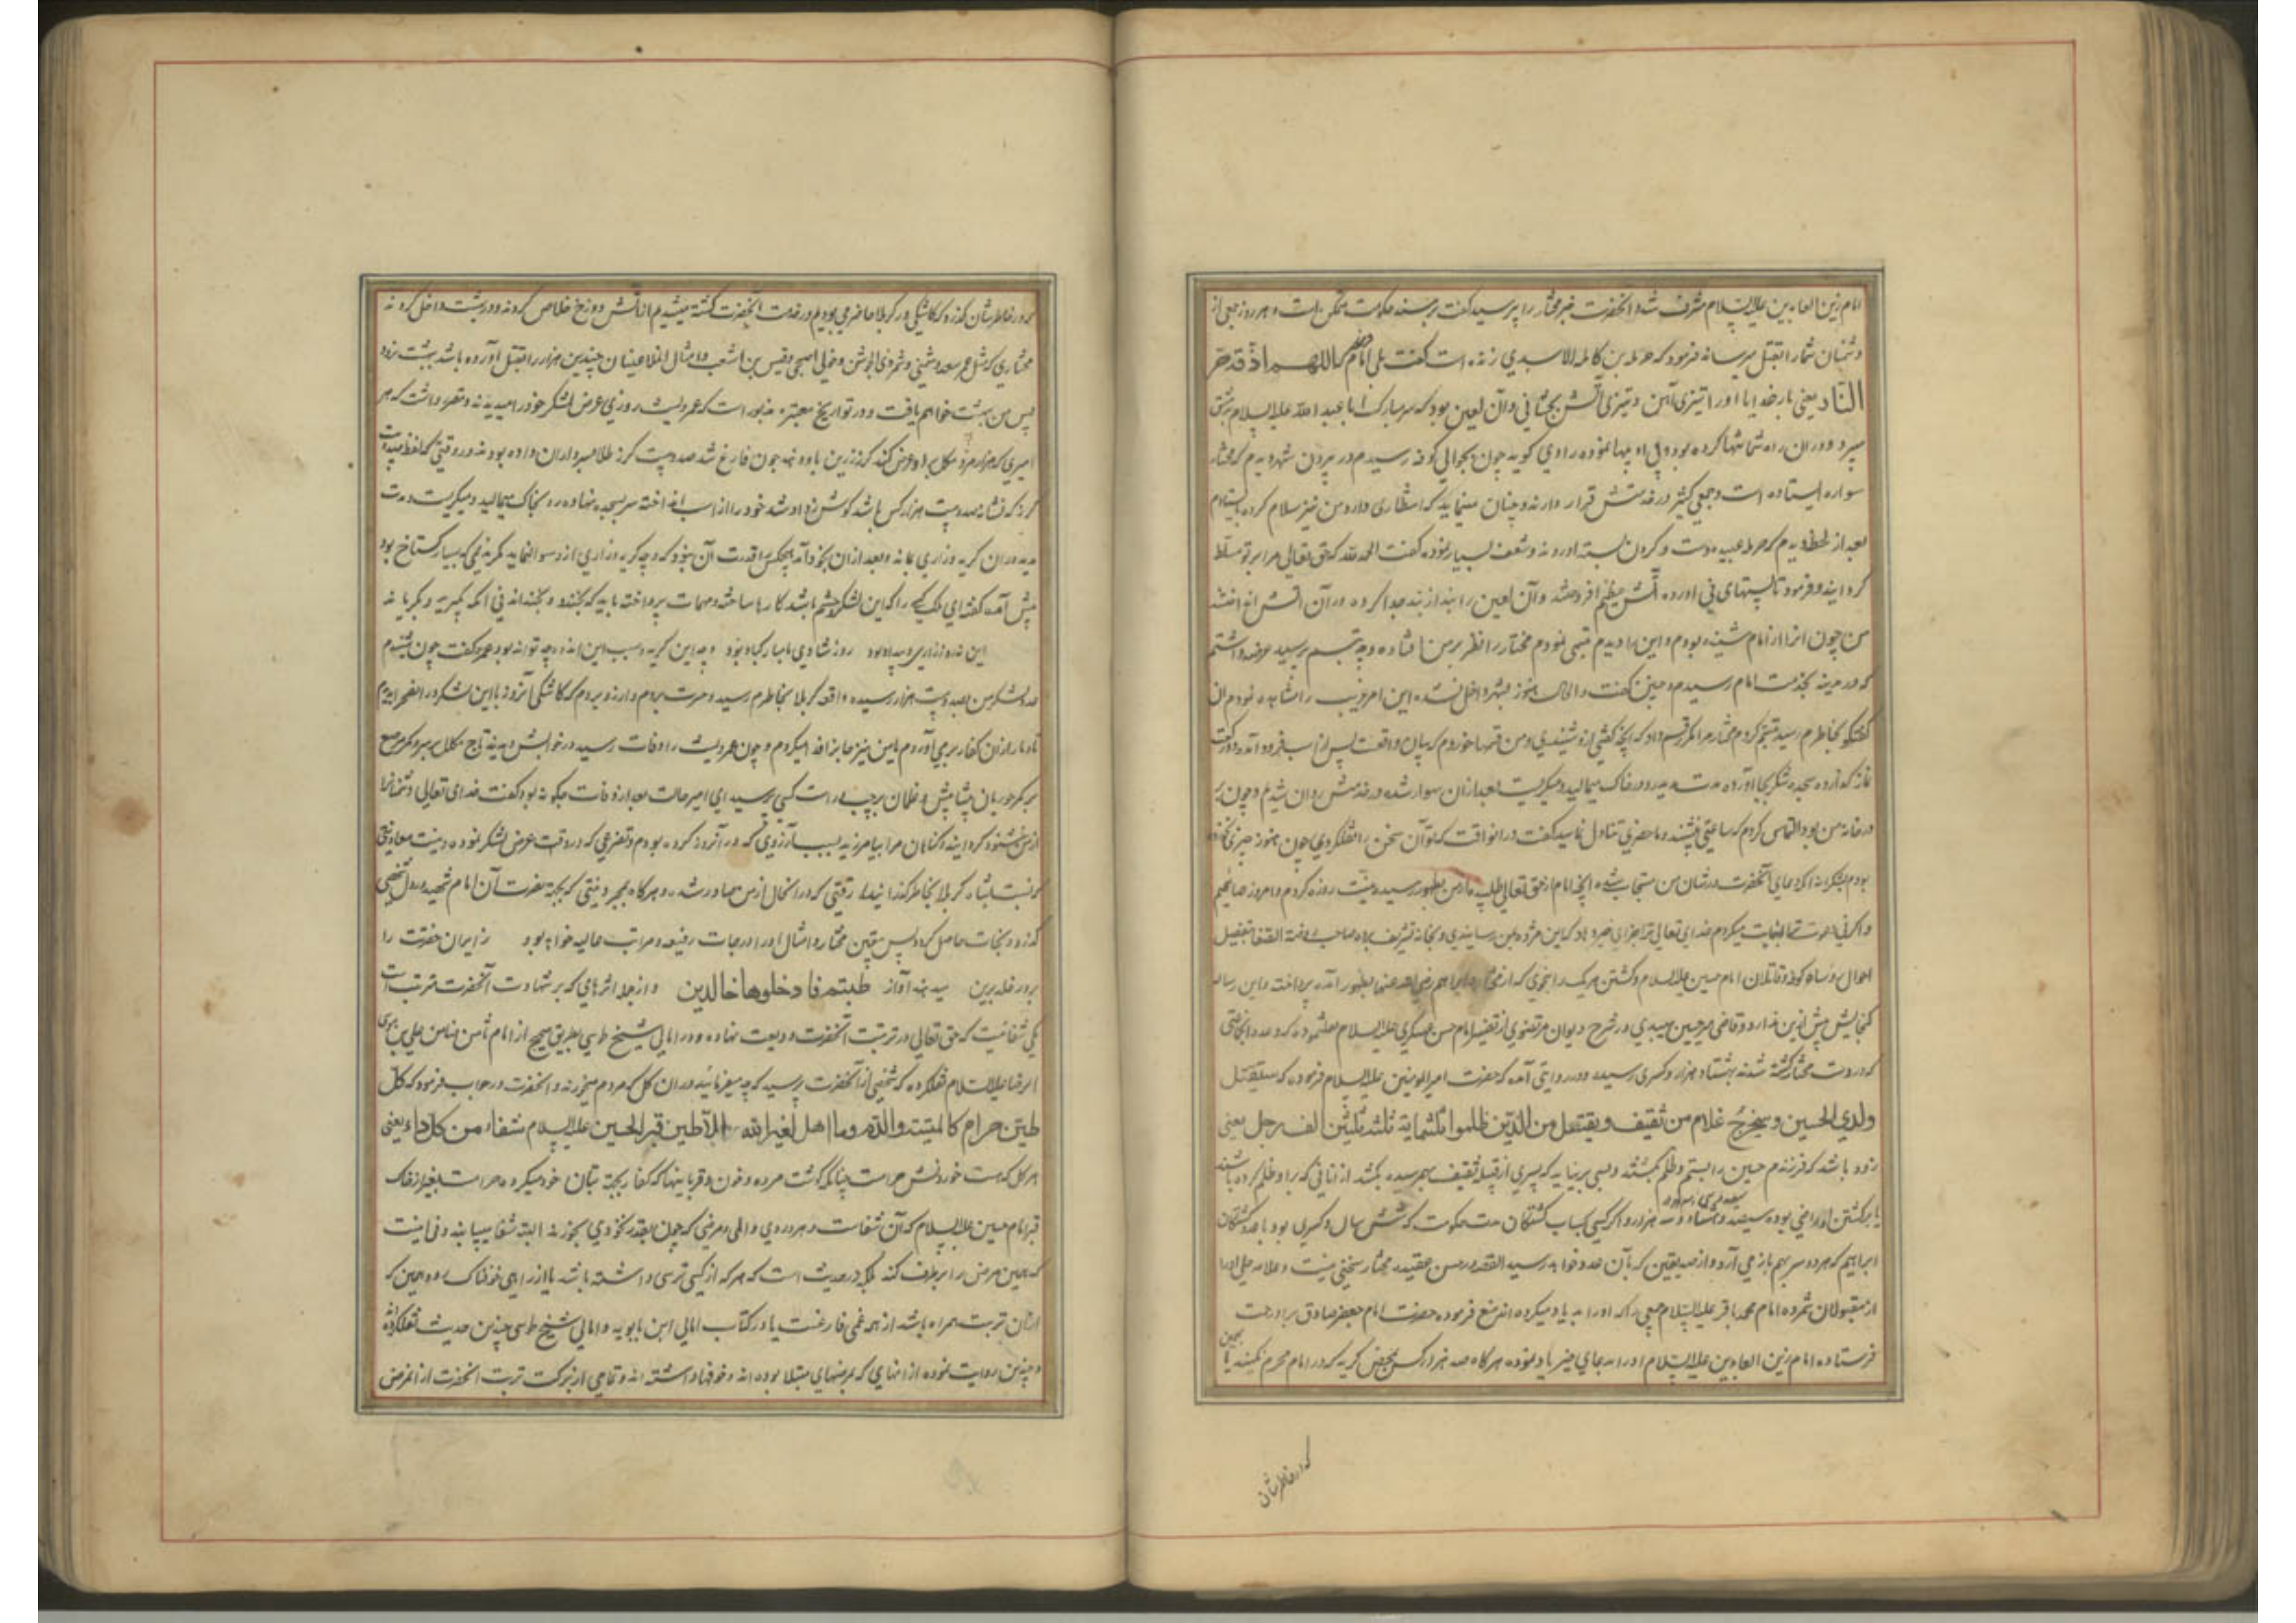 امام زین العابدین علیه السلام مشرف شد و انحضرت خبر مختار را پرسید گفت بر مسند حکومت متمکن است و هر روز جمعی از
دشمنان شما را بقتل میرساند فرمود که حرمله بن کاهل الاسدی زنده است گفت بلی امام گفت اللهم اذقه حر
النار یعنی بار خدایا او را تیزی آهن و تیزی آتش بچشانی و آن لعین بود که سر مبارک ابا عبد الله علیه السلام بدمشق
میبرد و در ان راه شماتتها کرده بود و بی ادبیها نموده راوی گوید چون بحوالی کوفه رسیدم در بیرون شهر دیدم که مختار
سواره ایستاده است و جمعی کثیر در خدمتش قرار دارند و چنان مینماید که انتظاری دارد من نیز سلام کرده بایستادم
بعد از لحظه دیدم که حرمله عیبه دست و گردن بسته اوردند و شعف بسیار نموده گفت الحمد لله که حق تعالی مرا بر تو مسلط
گردانید و فرمود تا پشتهای نی اورده آتش عظیم افروختند و آن لعین را بند از بند جدا کرده در آن آتش انداختند
من چون انرا از امام شنیده بودم و این را دیدم تبسمی نمودم مختار را نظر بر من افتاده وجه تبسم پرسید عرضه داشتم
که در مدینه بخدمت امام رسیدم و چنین گفت و الحال هنوز بشهر داخل نشده این امر غریب را مشاهده نمودم ان
گفتگو بخاطرم رسید تبسم کردم مختار مرا مکرر قسم داد که انچه گفتی ازو شنیدی و من قسمها خوردم که بیان واقعست پس از اسب فرود آمد و دو رکعت
نماز گذارده سجده شکر بجا آورده مدت مدید رو در خاک میمالید و میگریست بعد از ان سوار شده در خدمتش روان شدیم و چون
در خانه من بود التماس کردم که ساعتی بنشیند و ما حضری تناول نماید گفت در انوقت که تو آن سخن را نقل کردی چون هنوز چیزی نخورده
بودم بشکرانه انکه دعای آنحضرت در شان من مستجاب شده و انچه امام از حق تعالی طلبیده از من بظهور رسیده نیت روزه کردم و امروز صایمیم
احوال رؤساء کوفه و قاتلان امام حسین علیه السلام و کشتن هر یک را بنحوی که از مختار و ابراهیم رضی الله عنهما بظهور آمده پرداخته و این رساله
گنجایش بیش ازین ندارد و قاضی میر حسین میبدی در شرح دیوان مرتضوی از تفسیر امام حسن عسکری علیه السلام نقل نموده که عدد انجماعتی
که در دست مختار کشته شدند بهشتاد هزار و کسری رسیده و در روایتی آمده که حضرت امیرالمومنین علیه السلام فرموده که سیقتل
ولدی الحسین و سیخرج غلام من ثقیف و یقتل من الذین ظلموا ثلثمایة ثلثه ثلثین الف رجل یعنی
زود باشد که فرزندم حسین را بستم و ظلم بکشند و بسی برنیاید که پسری از قبیله ثقیف بهم رسیده بکشد از انانی که برا و ظلم کرده باشند
یا بکشتن او راضی بوده سیصد و هشتاد و سه هزار و اگر کسی حساب کشتگان مدت حکومت که شش سال و کسری بود با عدد کشتگان
ابراهیم که هر دو سر بهم باز می آرد و از صد یقین که بآن عدد خواهد رسید القصه در حسن عقیده مختار سخنی نیست و علامه حلی او را
از مقبولان شمرده امام محمد باقر علیه السلام جمعی را که او را به بد یاد میکرده اند منع فرموده حضرت امام جعفر صادق براو رحمت
فرستاده امام زین العابدین علیه السلام او را به دعای خیر یاد نموده هرگاه صد هزار کس بمحض گریه که در ایام محرم بکنند یا
که در خاطر شان
که در خاطر شان گذرد که کاشکی در کربلا حاضر می بودیم و در خدمت آنحضرت کشته میشدیم از آتش دوزخ خلاص گردند و در بهشت داخل گردند
مختاری که مثل عمر سعد و شمر ذی الجوشن و خولی اصبحی و قیس بن اشعث و امثال انملاعینان چندین هزار را بقتل آورده باشد ببهشت نرود
پس من بهشت خواهم یافت و در تواریخ معتبره مذکور است که عمرو لیث روزی عرض لشکر خود را میدید و مقرر داشت که هر
امیری که هزار مرد مکمل باو عرض کند گرز زرین باو دهند چون فارغ شد صد و بیست گرز طلا بسرداران داده بودند
که نشانه صد و بیست هزار کس باشد گوش زد او شد خود را از اسب انداخته سر بسجده نهاده رو بخاک میمالید و میگریست و مدت
مدید دران گریه و زاری بماند و بعد از ان بخود آمد هیچکس را قدرت آن نبود که وجه گریه و زاری ازو سوال نماید مگر ندیمی که بسیار گستاخ بود
پیش آمد گفت ای ملک کسی را که این لشکر و حشم باشد کارها ساخته و مهمات پرداخته باید که بخندد و بخنداند نی آنکه بگرید و بگریاند
این نه روز زاری و بیداد بود روز شادی و مبارکباد بود وجه این گریه و سبب این اندوه چه تواند بود عمرو گفت چون شنیدم
عدد لشکر من بصد و بیست هزار رسیده واقعه کربلا بخاطرم رسید و حسرت بردم و ارزو بردم که کاشکی آنروز با این لشکر در انصحرا بودم
تا دمار از ان کفار بر می آوردم یا من نیز جان فدا میکردم و چون عمرو لیث را وفات رسید در خوابش دیدند تاج مکلل بر سر و کمر مرصع
بر کمر حوریان پیشاپیش و غلمان بر چپ و راست کسی پرسید ای امیر حالت بعد از وفات چگونه بود گفت خدای تعالی دشمنانرا
از من خشنود گردانید و گناهان مرا بیامرزید بسبب آرزوی که در آنروز کرده بودم و تضرعی که در وقت عرض لشکر نموده و نیت معاونتی
که نسبت بشاه کربلا بخاطر گذرانیدم و رقتی که در انحال از من صادر شد و هرگاه بمجرد نیتی که بجهت نصرت آن امام شهید در دل شخصی
گذرد نجات حاصل گردد پس یقین مختار و امثال او را درجات رفیعه و مراتب عالیه خواهد بود زایران حضرت را
بر در خلد برین میدهند آواز طبتم فادخلوها خالدین و از جمله اثرهای که بر شهادت آنحضرت مترتبست
یکی شفائیست که حق تعالی در تربت آنحضرت ودیعت نهاده و در امالی شیخ طوسی بطریق صحیح از امام ثامن ضامن علی بن موسی
الرضا علیه السلام نقل کرده که شخصی از آنحضرت پرسید که چه میفرمائید در ان گل که مردم میخورند و انحضرت در جواب فرمود که کل
طین حرام کالمیته والدم وما اهل لغیر الله الا طین قبر الحسین علیه السلام شفاء من کل داء یعنی
هر گل که هست خوردنش حرامست چنانکه گوشت مرده و خون و قربانیها که کفار بجهة بتان خود میکرده حرامست بغیر از خاک
قبر امام حسین علیه السلام که آن شفاست و هر دردی و المی و مرضی که چون بقدر نخودی بخورند البته شفا مییابند و فی انیست
که همین مرض را برطرف کند بلکه در حدیث است که هر که از کسی ترسی داشته باشد یا از راهی خوفناک رود همین که
ازان تربت همراه باشد از همه غمی فارغست یا در کتاب امالی ابن بابویه و امالی شیخ طوسی چندین حدیث نقل کرده اند
و چندین روایت نموده از انهایی که بمرضهای مبتلا بوده اند و خوفها داشته اند و تمامی از برکت تربت انحضرت از انمرض